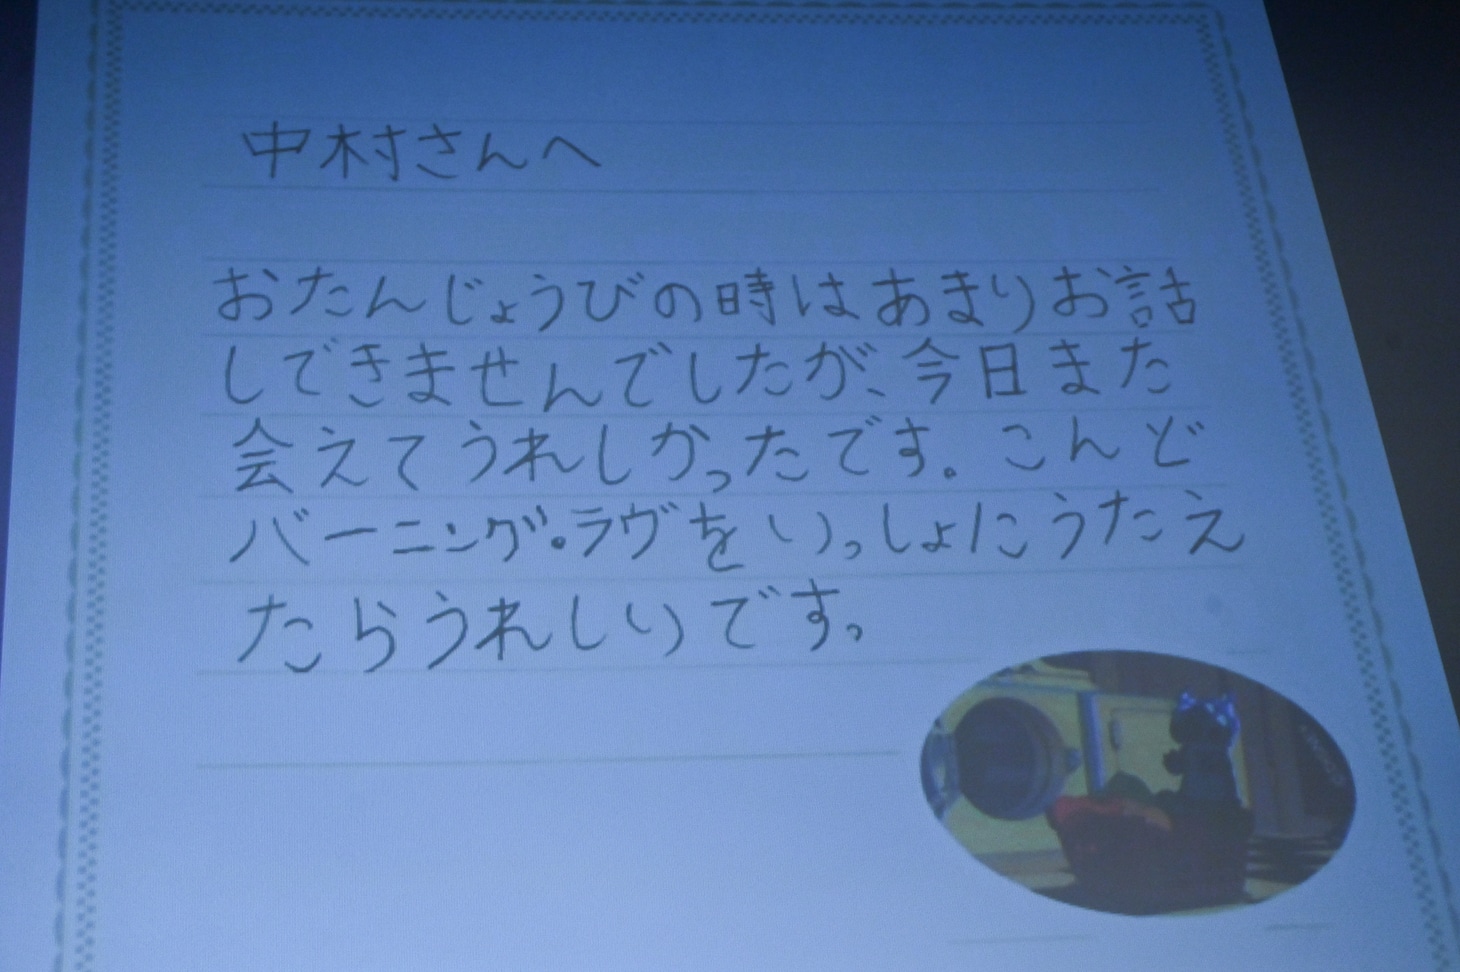 中村さんへ
おたんじょうびの時はあまりお話
しできませんでしたが、今日また
会えてうれしかったです。こんど
バーニング・ラヴをいっしょにうたえ
たらうれしいです。